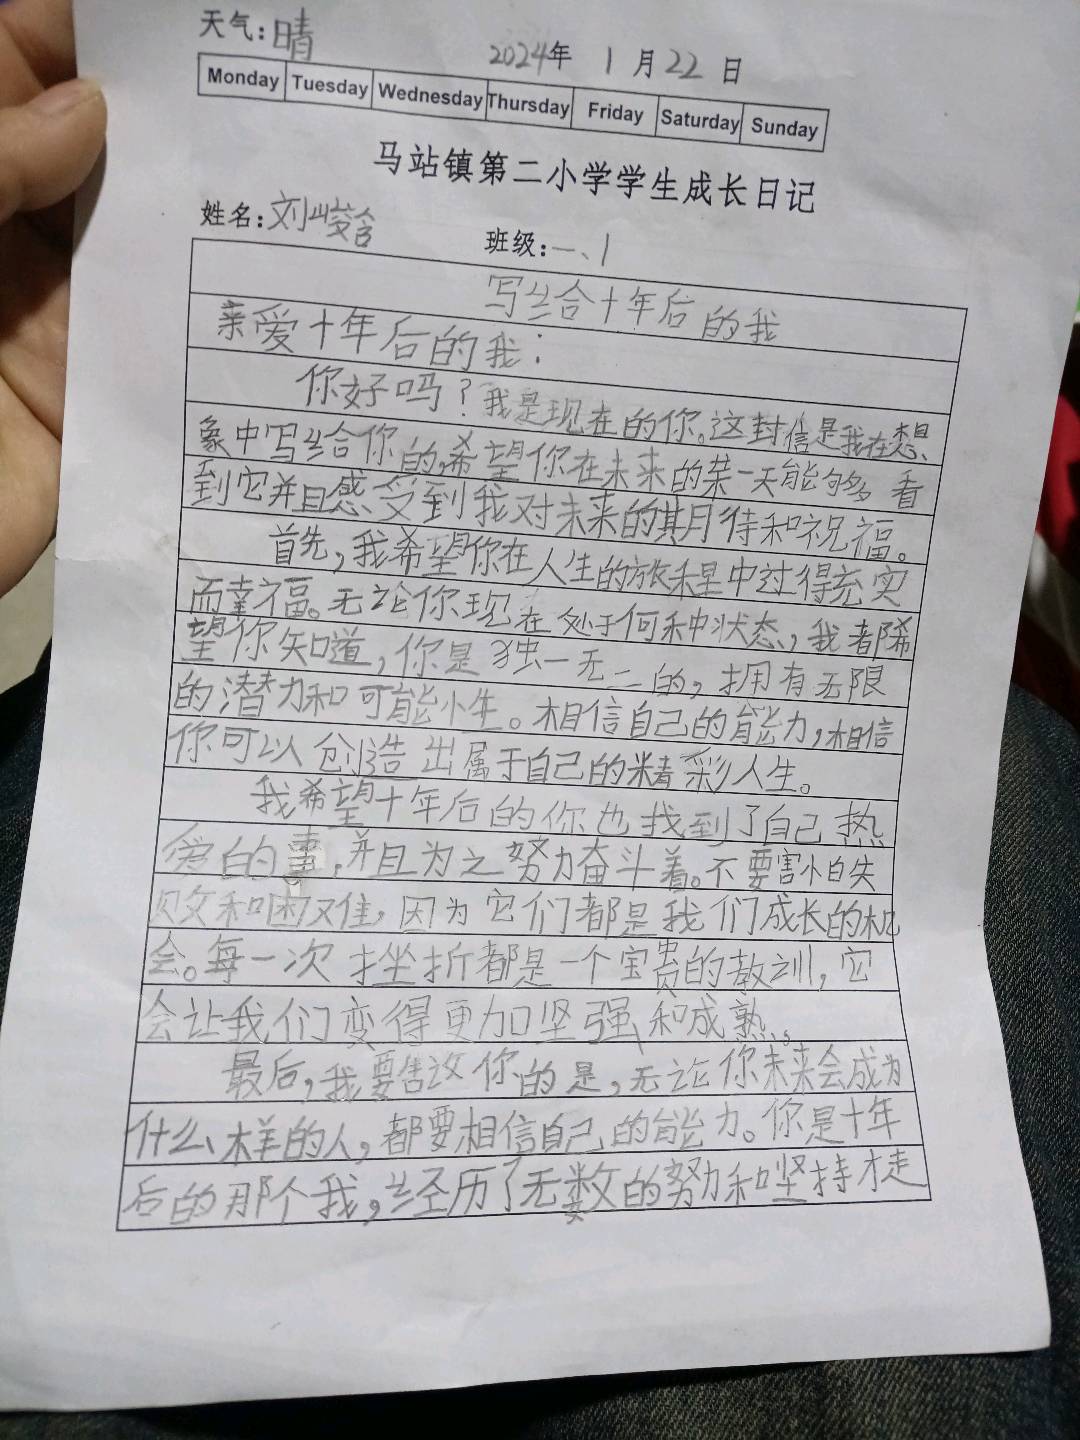 天气:晴 2024年 1月22日
Monday Tuesday Wednesday Thursday Friday Saturday Sunday
马站镇第二小学学生成长日记
姓名:刘峻含 班级:一、1
写给十年后的我
亲爱十年后的我:
你好吗?我是现在的你。这封信是我在想
象中写给你的,希望你在未来的某一天能够看
到它并且感受到我对未来的期待和祝福。
首先,我希望你在人生的旅程中过得充实
而幸福。无论你现在处于何种状态,我都希
望你知道,你是独一无二的,拥有无限
的潜力和可能性。相信自己的能力,相信
你可以创造出属于自己的精彩人生。
我希望十年后的你也找到了自己热
爱的事,并且为之努力奋斗着。不要害怕失
败和困难,因为它们都是我们成长的机
会。每一次挫折都是一个宝贵的教训,它
会让我们变得更加坚强和成熟。
最后,我要告诉你的是,无论你未来会成为
什么样的人,都要相信自己的能力。你是十年
后的那个我,经历了无数的努力和坚持才走